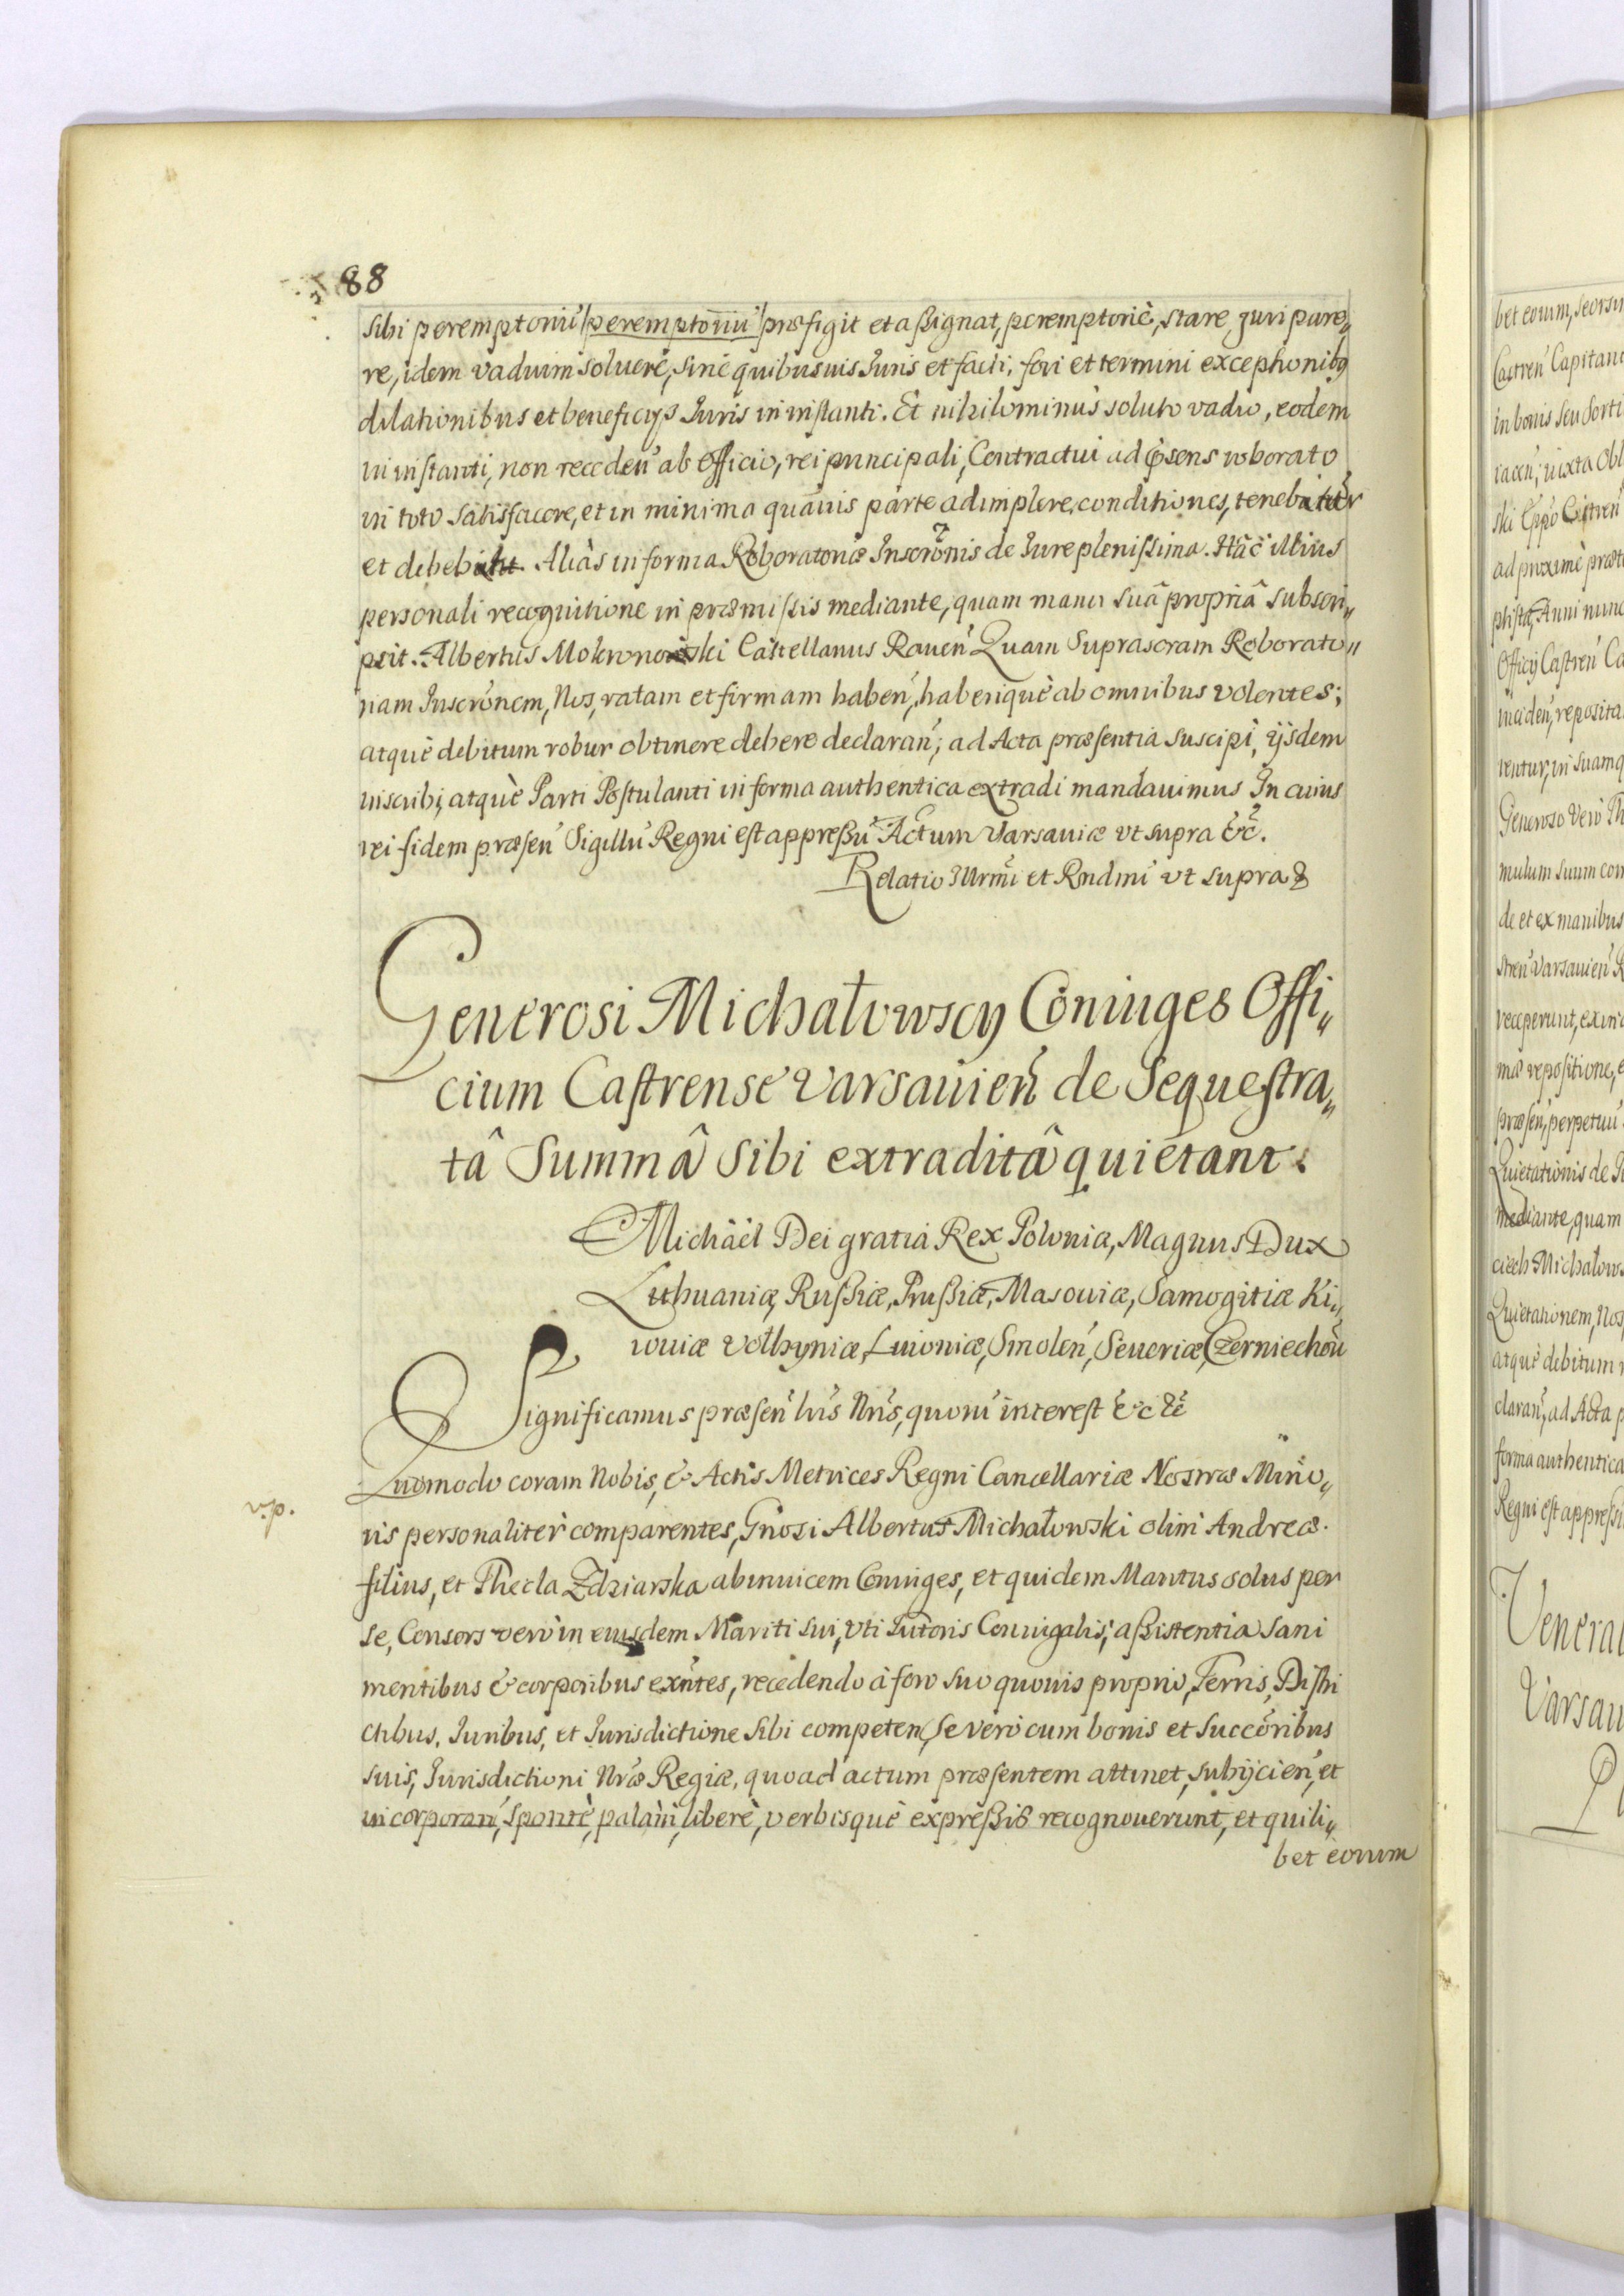 88
sibi peremptoriũ /peremptoriũ/ præfigit et aßignat, peremptoriè, stare, juri pare„
re, idem vadium soluere, sine quibusuis Juris et facti, fori et termini exceptionibq
dilationibus et beneficijs Juris in instanti. Et nihilominus soluto vadio, eodem
in instanti, non receden̉ ab Officio, rei principali, Contractui ad p̃sens roborato
in toto satisfacere, et in minima quãuis parte adimplere conditiones, tenebitur
et debebit. Aliàs in forma Roboratoriæ Inscrõnis de Jure plenißima. Hãc illius
personali recognitione in præmißis mediante, quam manu suâ propriâ subscri„
psit. Albertus Mokronowski Castellanus Rauen̉ Quam Suprascram Roborato„
riam Inscrõnem, Nos, ratam et firmam haben̉, haberiquè ab omnibus volentes;
atquè debitum robur obtinere debere declaran̉; ad Acta præsentia suscipi, ijsdem
inscribi, atquè Parti Postulanti in forma authentica extradi mandauimus In cuius
rei fidem præsen̉ Sigillũ Regni est appreßũ Actum Varsauiæ vt supra &c̃.
Relatio Illrmi et Rndmi vt supra &
Generosi Michałowscy Coniuges Offi„
cium Castrense Varsauien̉ de Sequestra„
tâ Summâ Sibi extraditâ quietant.
Michäel Dei gratia Rex Poloniæ, Magnus Dux
Lithuaniæ, Rußiæ, Prußiæ, Masouiæ, Samogitiæ Ki„
iouiæ Volhyniæ, Liuoniæ, Smolen̉, Seueriæ, Czerniechou
Significamus præsen̉ lris Nris, quorũ interest &c &c̃
Quomodo coram Nobis, & Actis Metrices Regni Cancellariæ Nostræ Mino„
v.p.
ris personaliter comparentes, Gnosi Albertus Michałowski olim Andreæ
filius, et Thecla Zdziarska abinuicem Coniuges, et quidem Maritus solus per
se, Consors verò in eiusdem Mariti sui, vti Tutoris Coniugalis, aßistentia sani
mentibus & corporibus exñtes, recedendo à foro suo quouis proprio, Terris, Distri
ctibus, Juribus, et Jurisdictione Sibi competen̉, se vero cum bonis et succõribus
suis, Jurisdictioni Nræ Regiæ, quoad actum præsentem attinet, subijcien̉, et
incorporan̉, spontè, palàm, liberè, verbisquè expreßis recognouerunt, et quili„
bet eorum
bet eorum, seorsim
Castren̉ Capitane
in bonis seu sorti
iacen̉, iuxta Obl
ad proximè præt
Officij Castren̉ Ca
inciden̉, reposita
rentur, in suamq
Generoso Verò Th
mulum suum con
de et ex manibus
stren̉ Varsauien̉ R
receperunt, exin
ma repositione, e
præsen̉, perpetuũ
Quietationis de
mediante, quam
ciech Michałow
Quietationem, Nos
atquè debitum r
claran̉, ad Acta p
forma authentica
Regni est appreßũ
Venerab
Varsau